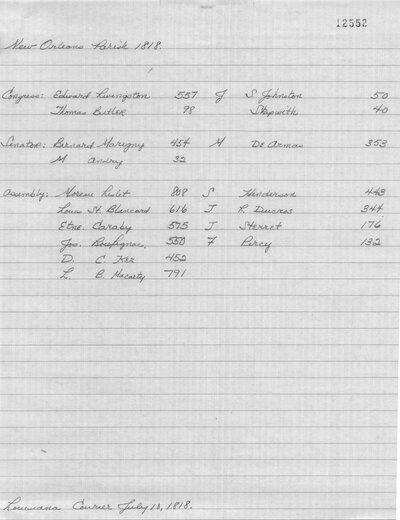 12552
New Orleans Parish 1818.
Congress: Edward Livingston 557 J S Johnston 50
Thomas Butler 98 Skipwith 40
Senator: Bernard Marigny 454 M De Armas 353
M Andry 32
Assembly: Moreau Lislet 808 S Henderson 443
Louis St. Blancard 616 J R. Ducros 344
Etne. Caraby 575 J Sterret 176
Jos. 550 F Percy 132
D. C. Ker 452
L. B. Macarty 791
Louisiana Courier July 18, 1818.